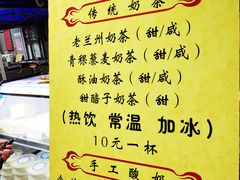 传统奶茶
老兰州奶茶（甜/咸）
青稞藜麦奶茶（甜/咸）
酥油奶茶（甜/咸）
甜醅子奶茶（甜）
(热饮 常温 加冰)
10元一杯
手工酸奶